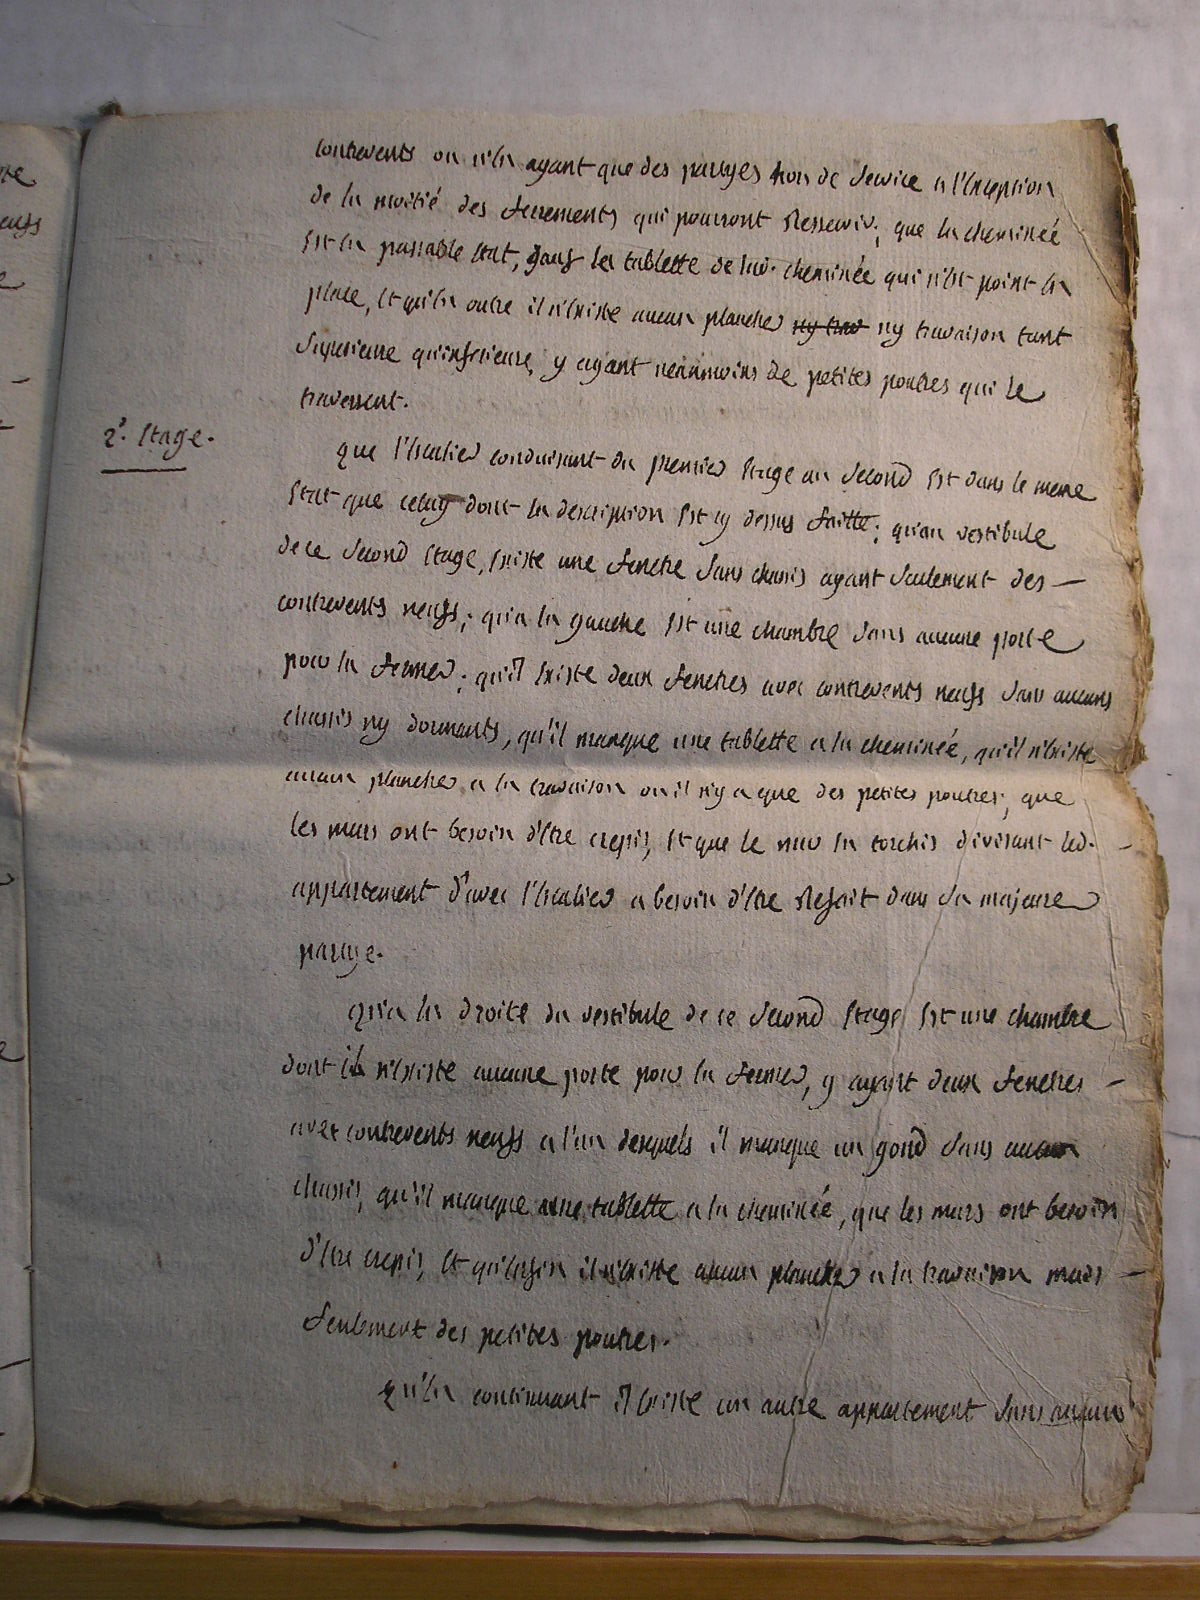 contrevents ou n'en ayant que des partyes hors de Service a l'Exception
de la moitié des ferrements qui pourront Resservir; que la cheminée
Est En passable Etat, sauf les tablette de lad. cheminée qui n'est point En
place, Et qu'En outre il n'Existe aucun plancher ny trav ny travaison tant
Superieure qu'inferieure, y ayant néanmoins de petites poutres qui le
traversent.
2e. Etage.
que l'Escalier conduisant du premier Etage au Second Est dans le meme
Etat que celuy dont la description Est cy dessus faitte; qu'au vestibule
de ce Second Etage, Existe une fenetre Sans chassis ayant Seulement des
contrevents neufs; qu'a la gauche Est une chambre Sans aucune porte
pour la fermer; qu'il Existe deux fenetres avec contrevents neufs Sans aucuns
chassis ny dormants, qu'il manque une tablette a la cheminée, qu'il n'Existe
aucun plancher a la travaison ou il n'y a que des petites poutres; que
les murs ont besoin d'Etre crepis, Et que le mur En torchis divisant led.
appartement d'avec l'Escalier a besoin d'Etre Refait dans Sa majeure
partye.
qu'a la droite du vestibule de ce Second Etage Est une chambre
dont il n'Existe aucune porte pour la fermer, y ayant deux fenetres
avec contrevents neufs a l'un desquels il manque un gond Sans aucun
chassis, qu'il manque une tablette a la cheminée, que les murs ont besoin
d'Etre crepis, Et qu'Enfin il n'Existe aucun plancher a la travaison mais
Seulement des petites poutres.
qu'En continuant il Existe un autre appartement Sans aucuns